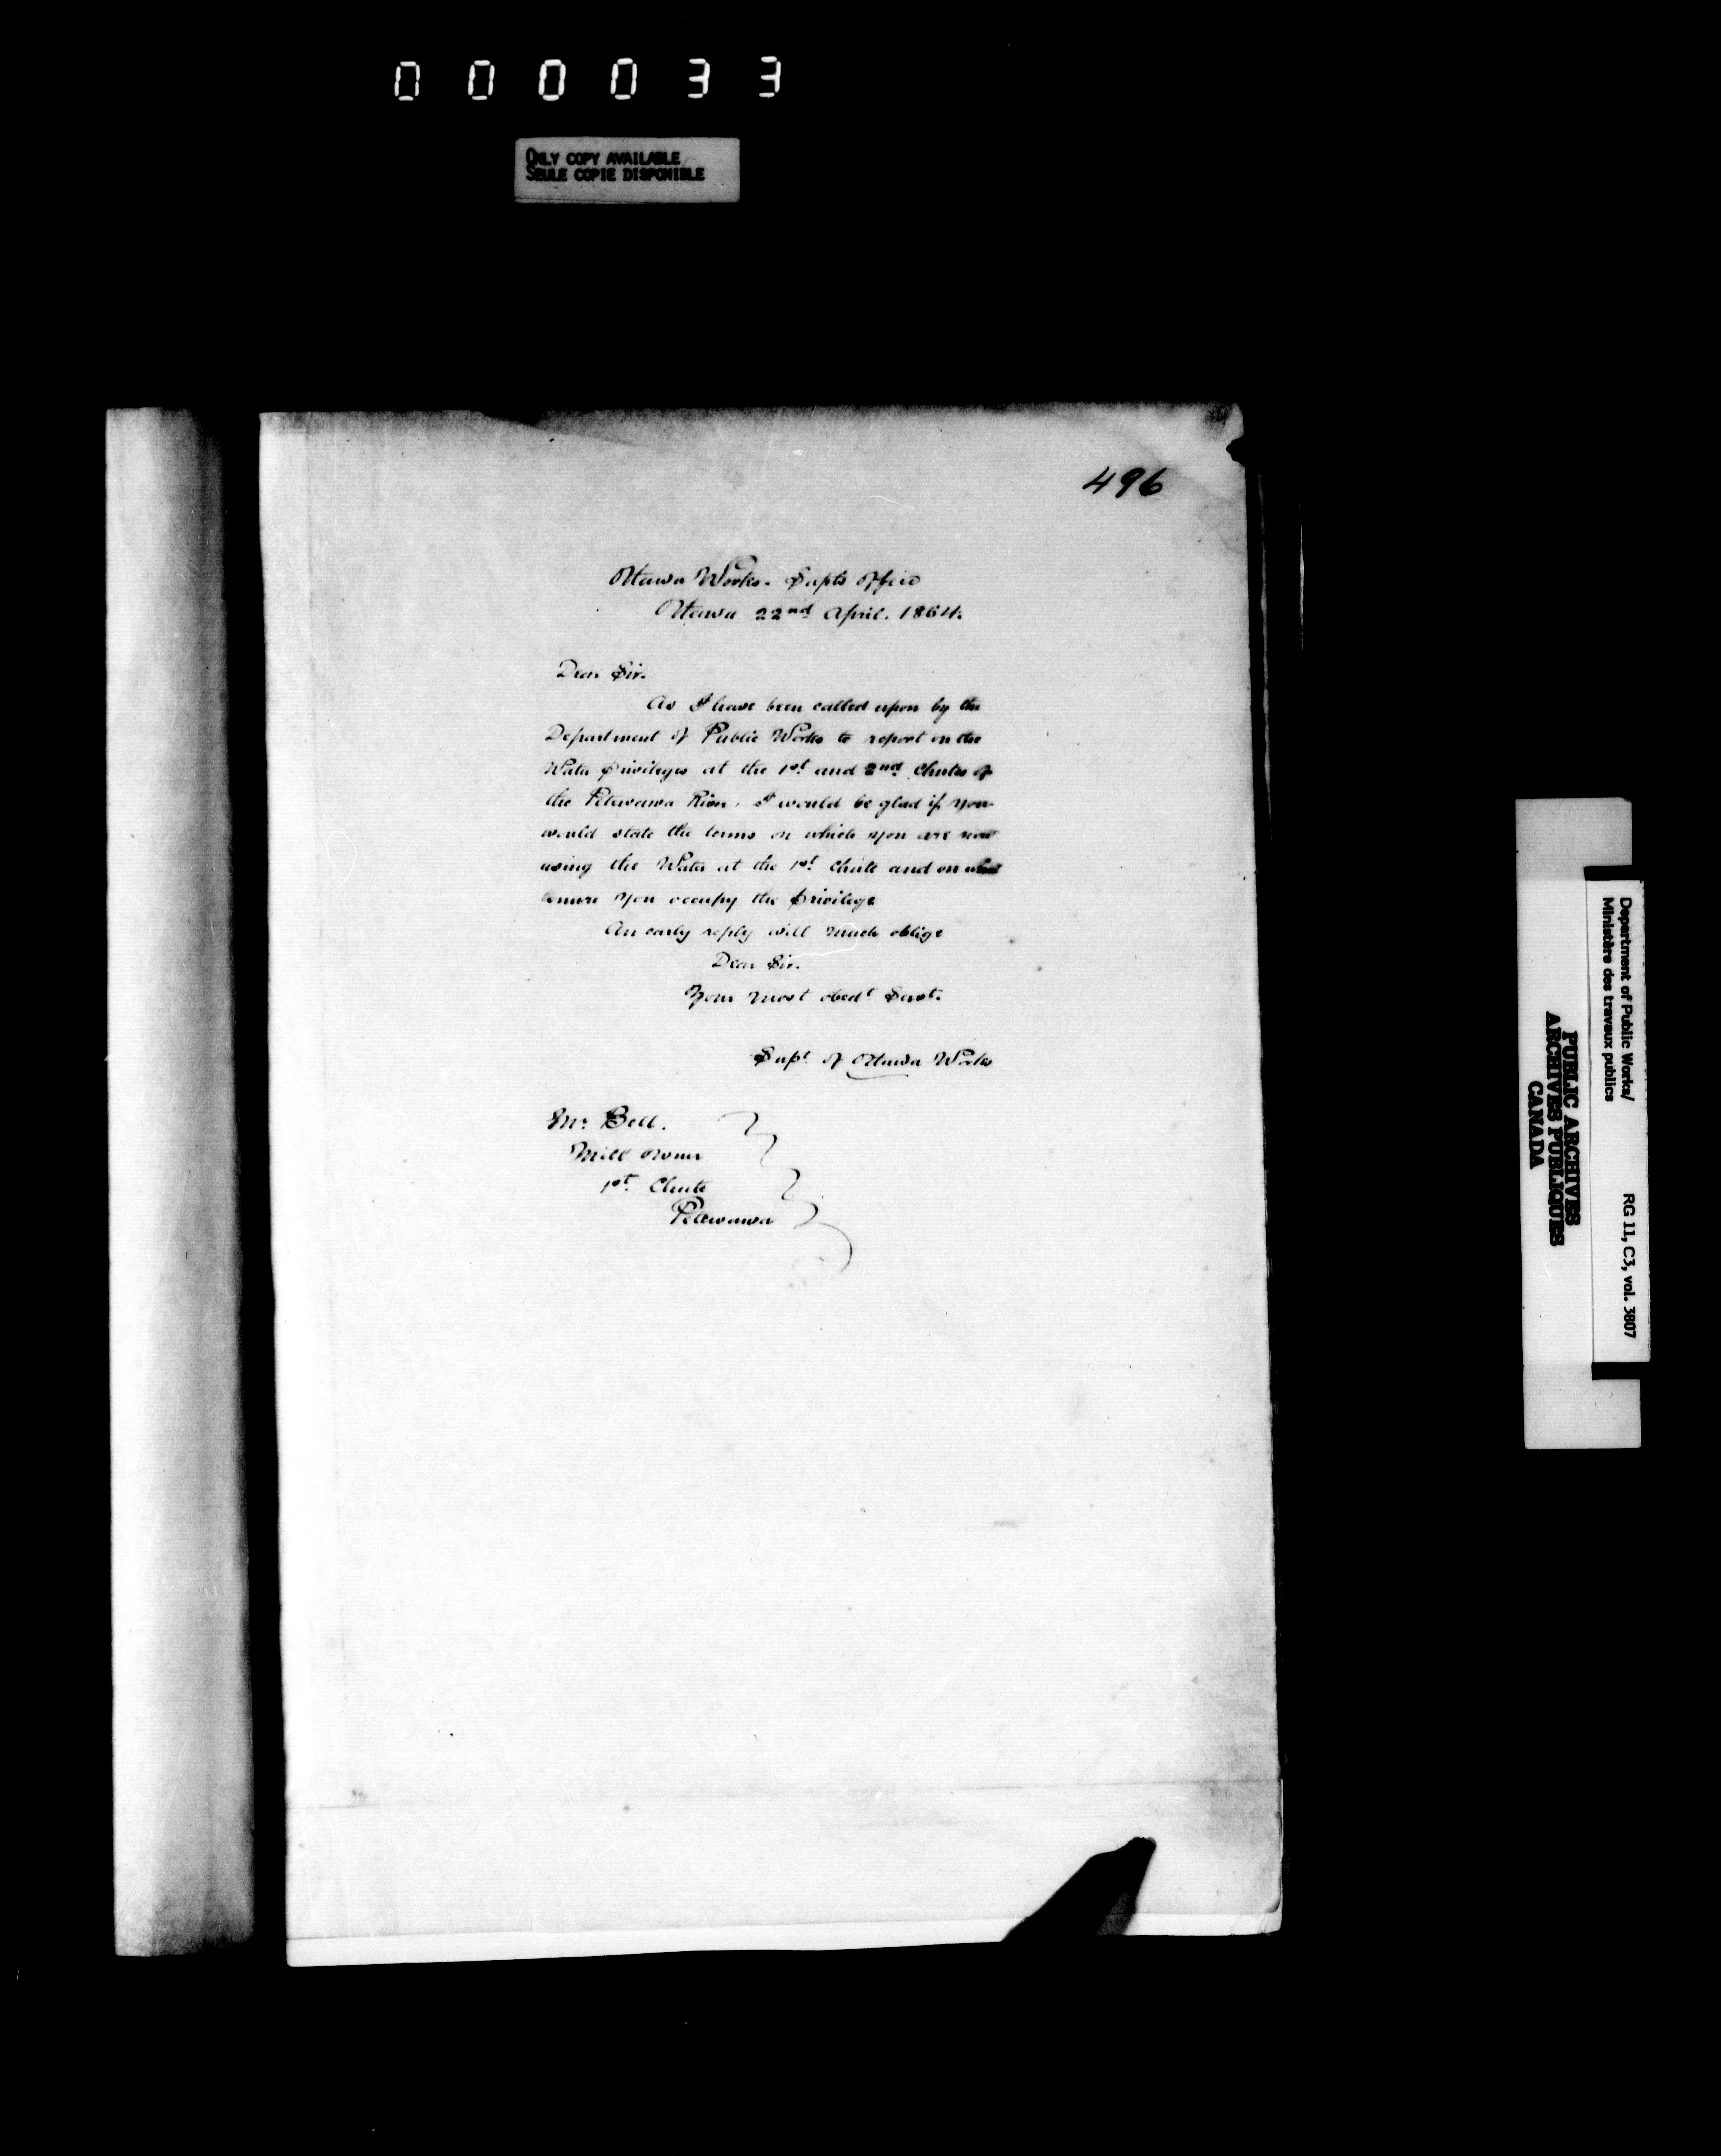 000033
ONLY COPY AVAILABLE
SEULE COPIE DISPONIBLE
496
Ottawa Works. Supts Office
Ottawa 22nd April. 1864.
Dear Sir.
As I have been called upon by the
Department of Public Works to report on the
Water privileges at the 1st and 2nd Chutes of
the Petewawa River. I would be glad if you
would state the terms on which you are now
using the Water at the 1st Chute and on what
tenure you occupy the privilege
An early reply will much oblige
Dear Sir.
Your most obedt Servt.
Supt of Ottawa Works
Mr Bell.
Mill owner
1st Chute
Petewawa
Department of Public Works/
Ministère des travaux publics
RG 11, C3, vol. 3807
PUBLIC ARCHIVES
ARCHIVES PUBLIQUES
CANADA